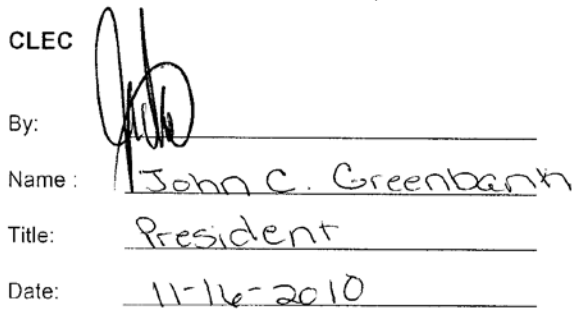 CLEC
By:
Name : John C. Greenbank
Title: President
Date: 11-16-2010